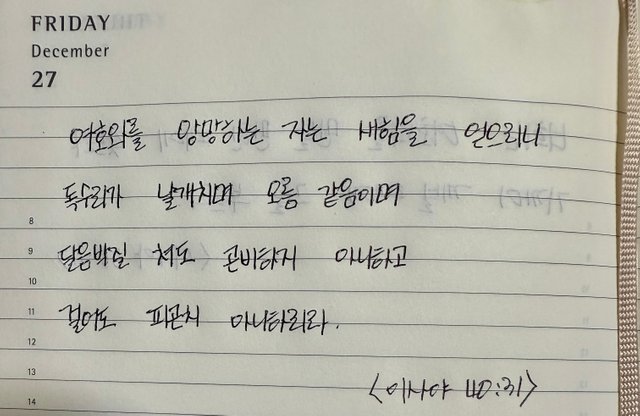 FRIDAY
December
27
여호와를 앙망하는 자는 새힘을 얻으리니
독수리가 날개치며 오름 같음이며
8
9 달음박질 쳐도 곤비하지 아니하고
10
11 걸어도 피곤치 아니하리라.
12
13
14 <이사야 40:31>